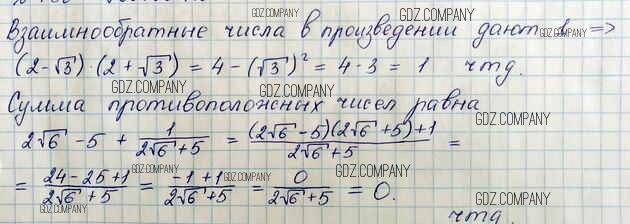 Взаимнообратные числа в произведении дают 1 =>
(2-√3)·(2+√3) = 4-(√3)² = 4-3 = 1 чтд.
Сумма противоположных чисел равна
2√6 - 5 + 1/(2√6+5) = ((2√6-5)(2√6+5)+1)/(2√6+5) =
= (24-25+1)/(2√6+5) = (-1+1)/(2√6+5) = 0/(2√6+5) = 0.
чтд.
GDZ.COMPANY
GDZ.COMPANY
GDZ.COMPANY
GDZ.COMPANY
GDZ.COMPANY
GDZ.COMPANY
GDZ.COMPANY
GDZ.COMPANY
GDZ.COMPANY
GDZ.COMPANY
GDZ.COMPANY
GDZ.COMPANY